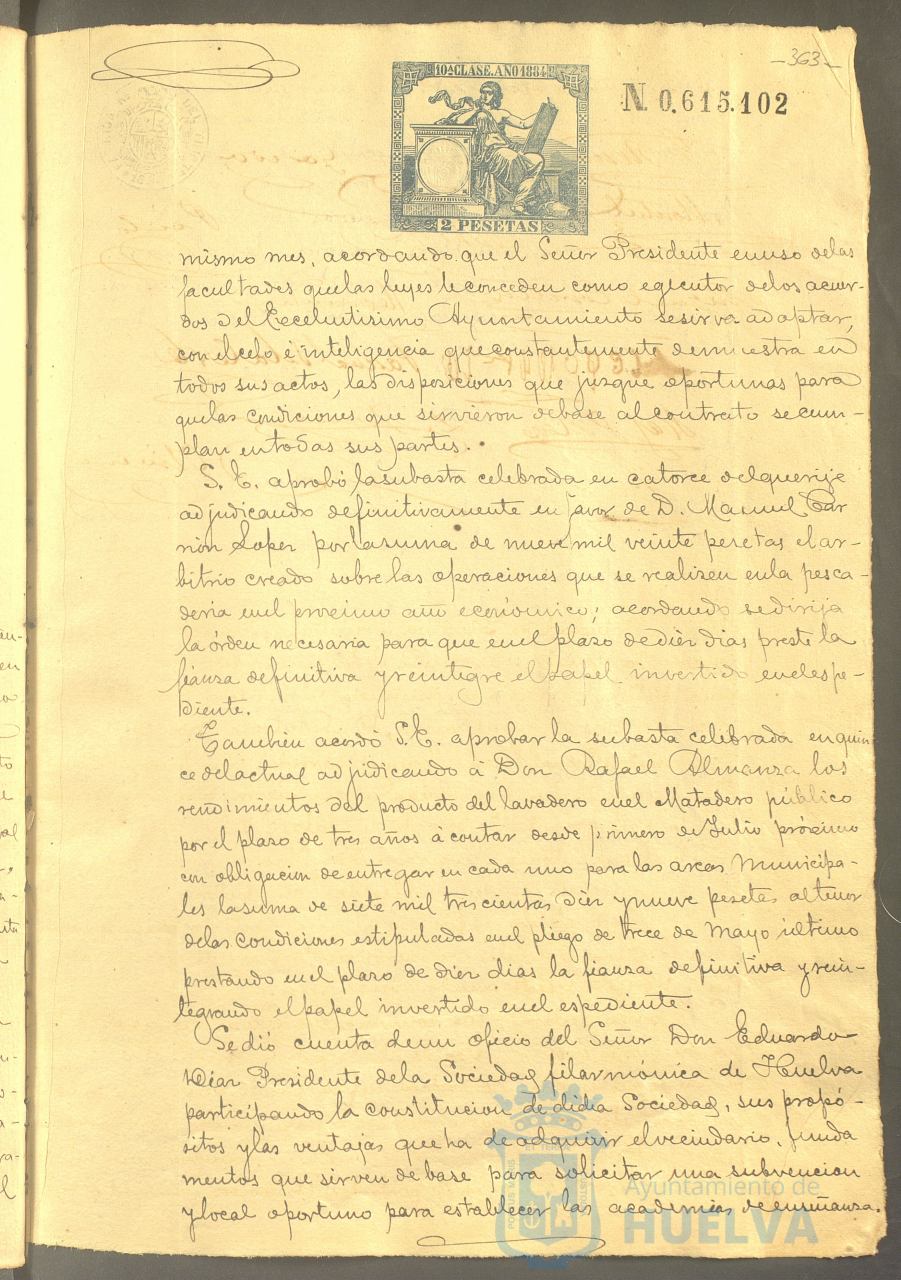 -363-
10ª CLASE. AÑO 1884
N. 0.615.102
2 PESETAS
mismo mes, acordando que el Señor Presidente en uso de las
facultades que las leyes le conceden como egecutor de los acuer-
dos del Excelentisimo Ayuntamiento se sirva adoptar,
con el celo é inteligencia que constantemente demuestra en
todos sus actos, las disposiciones que juzgue oportunas para
que las condiciones que sirvieron de base al contrato se cum-
plan en todas sus partes.
S. E. aprobó la subasta celebrada en catorce del que rije
adjudicando definitivamente en favor de D. Manuel Gar
rion Lopez por la suma de nueve mil veinte pesetas el ar-
bitrio creado sobre las operaciones que se realizen en la pesca-
deria en el proximo año económico; acordando se dirija
la órden necesaria para que en el plazo de diez dias preste la
fianza definitiva y reintegre el papel invertido en el espe-
diente.
Tambien acordó S. E. aprobar la subasta celebrada en quin
ce del actual adjudicando á Don Rafael Almanza los
rendimientos del producto del lavadero en el Matadero público
por el plazo de tres años á contar desde primero de Julio próximo
con obligacion de entregar en cada uno para las arcas Municipa-
les la suma de siete mil trescientas diez y nueve pesetas al tenor
de las condiciones estipuladas en el pliego de trece de Mayo último
prestando en el plazo de diez dias la fianza definitiva y rein-
tegrando el papel invertido en el espediente.
Se dió cuenta de un oficio del Señor Don Eduardo
Diaz Presidente de la Sociedad filarmónica de Huelva
participando la constitucion de dicha Sociedad, sus propó-
sitos y las ventajas que ha de adquirir el vecindario, funda
mentos que sirven de base para solicitar una subvencion
y local oportuno para establecer las academias de enseñanza.
Ayuntamiento de
HUELVA